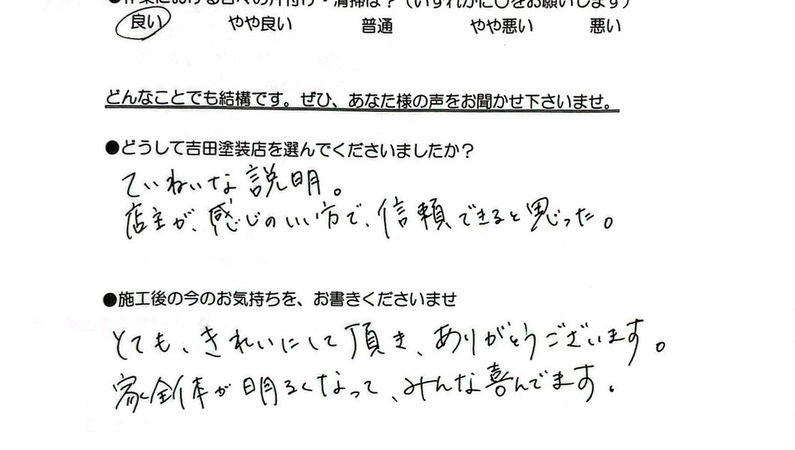 ●作業における日々の片付け・清掃は？（いずれかに○をお願いします）
良い やや良い 普通 やや悪い 悪い
どんなことでも結構です。ぜひ、あなた様の声をお聞かせ下さいませ。
●どうして吉田塗装店を選んでくださいましたか？
ていねいな説明。
店主が、感じのいい方で、信頼できると思った。
●施工後の今のお気持ちを、お書きくださいませ
とても、きれいにして頂き、ありがとうございます。
家全体が明るくなって、みんな喜んでます。